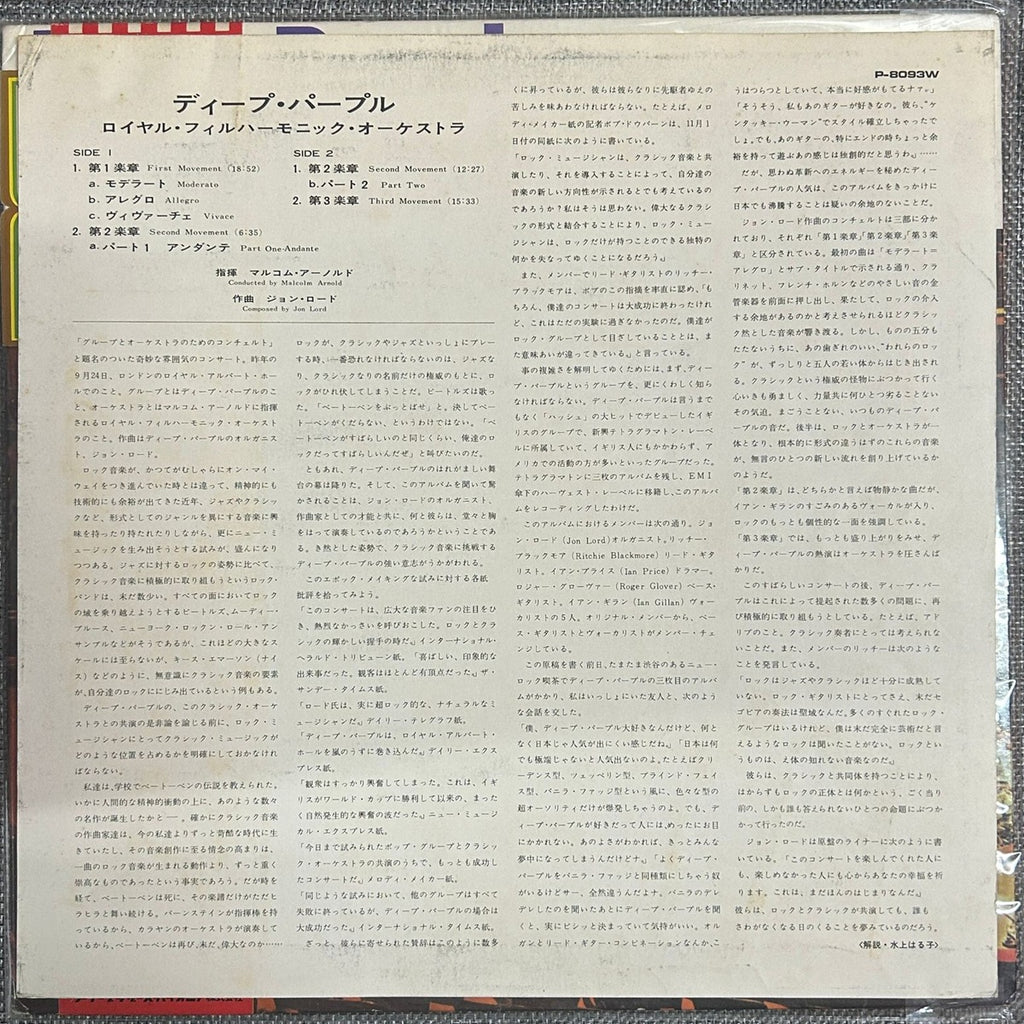 P-8093W
ディープ・パープル
ロイヤル・フィルハーモニック・オーケストラ
SIDE 1
1. 第1楽章 First Movement (18:52)
a. モデラート Moderato
b. アレグロ Allegro
c. ヴィヴァーチェ Vivace
2. 第2楽章 Second Movement (6:35)
a. パート1 アンダンテ Part One-Andante
SIDE 2
1. 第2楽章 Second Movement (12:27)
b. パート2 Part Two
2. 第3楽章 Third Movement (15:33)
指揮 マルコム・アーノルド
Conducted by Malcolm Arnold
作曲 ジョン・ロード
Composed by Jon Lord
「グループとオーケストラのためのコンチェルト」
と題名のついた奇妙な雰囲気のコンサート。昨年の
9月24日、ロンドンのロイヤル・アルバート・ホー
ルでのこと。グループとはディープ・パープルのこ
と、オーケストラとはマルコム・アーノルドに指揮
されるロイヤル・フィルハーモニック・オーケスト
ラのこと。作曲はディープ・パープルのオルガニス
ト、ジョン・ロード。
ロック音楽が、かつてがむしゃらにオン・マイ・
ウェイをつき進んでいた時とは違って、精神的にも
技術的にも余裕が出てきた近年、ジャズやクラシッ
クなど、形式としてのジャンルを異にする音楽に興
味を持ったり持たれたりしながら、更にニュー・ミ
ュージックを生み出そうとする試みが、盛んになり
つつある。ジャズに対するロックの姿勢に比べて、
クラシック音楽に積極的に取り組もうというロック・
バンドは、末だ数少い。すべての面においてロック
の域を乗り越えようとするビートルズ、ムーディー・
ブルース、ニューヨーク・ロックン・ロール・アン
サンブルなどがそうであるが、これほどの大きなス
ケールには至らないが、キース・エマーソン（ナイ
ス）などのように、無意識にクラシック音楽の要素
が、自分達のロックににじみ出ているという例もある。
ディープ・パープルの、このクラシック・オーケ
ストラとの共演の是非論を論じる前に、ロック・ミ
ュージシャンにとってクラシック・ミュージックが
どのような位置を占めるかを明確にしておかなけれ
ばならない。
私達は、学校でベートーベンの伝説を教えられた。
いかに人間的な精神的衝動の上に、あのような数々
の名作が誕生したかと―。確かにクラシック音楽
の作曲家達は、今の私達よりずっと苛酷な時代に生
きていたし、その音楽創作に至る情念の高まりは、
一曲のロック音楽が生まれる動作より、ずっと重く
崇高なものであったという事実であろう。だが時を
経て、ベートーベンは死に、その楽譜だけがただヒ
ラヒラと舞い続ける。バーンスタインが指揮棒を持
っているから、カラヤンのオーケストラが演奏して
いるから、ベートーベンは再び、末だ、偉大なのか……
ロックが、クラシックやジャズといっしょにプレー
する時、一番恐れなければならないのは、ジャズな
り、クラシックなりの名前だけの権威のもとに、ロ
ックがひれ伏してしまうことだ。ビートルズは歌っ
た。「ベートーベンをぶっとばせ」と。決してベー
トーベンがくだらない、というわけではない。「ベ
ートーベンがすばらしいのと同じくらい、俺達のロ
ックだってすばらしいんだぜ」と叫びたいのだ。
ともあれ、ディープ・パープルのはれがましい舞
台の幕は降りた。そして、このアルバムを聞いて驚
かされることは、ジョン・ロードのオルガニスト、
作曲家としての才能と共に、何と彼らは、堂々と胸
をはって演奏しているのであろうかということであ
る。き然とした姿勢で、クラシック音楽に挑戦する
ディープ・パープルの強い意志がうかがわれる。
このエポック・メイキングな試みに対する各紙
批評を拾ってみよう。
「このコンサートは、広大な音楽ファンの注目をひ
き、熱烈なかっさいを呼びおこした。ロックとクラシ
ックの輝かしい握手の時だ。」インターナショナル・
ヘラルド・トリビューン紙。「喜ばしい、印象的な
出来事だった。観客はほとんど有頂点だった。」ザ・
サンデー・タイムス紙。
「ロード氏は、実に超ロック的な、ナチュラルなミ
ュージシャンだ。」デイリー・テレグラフ紙。
「ディープ・パープルは、ロイヤル・アルバート・
ホールを嵐のうずに巻き込んだ。」デイリー・エクス
プレス紙。
「観衆はすっかり興奮してしまった。これは、イギ
リスがワールド・カップに勝利して以来の、まった
く自然発生的な興奮の波だった。」ニュー・ミュージ
カル・エクスプレス紙。
「今日まで試みられたポップ・グループとクラシッ
ク・オーケストラの共演のうちで、もっとも成功し
たコンサートだ。」メロディ・メイカー紙。
「同じような試みにおいて、他のグループはすべて
失敗に終っているが、ディープ・パープルの場合は
大成功だった。」インターナショナル・タイムス紙。
ざっと、彼らに寄せられた賛辞はこのように数多
くに昇っているが、彼らは彼らなりに先駆者ゆえの
苦しみを味あわなければならない。たとえば、メロ
ディ・メイカー紙の記者ボブ・ドゥバーンは、11月1
日付の同紙に次のように書いている。
「ロック・ミュージシャンは、クラシック音楽と共
演したり、それを導入することによって、自分達の
音楽の新しい方向性が示されるとでも考えているの
であろうか？私はそうは思わない。偉大なるクラシ
ックの形式と結合することにより、ロック・ミュー
ジシャンは、ロックだけが持つことのできる独特の
何かを失なってゆくことになるだろう。」
また、メンバーでリード・ギタリストのリッチー・
ブラックモアは、ボブのこの指摘を率直に認め、「も
ちろん、僕達のコンサートは大成功に終わったけれ
ど、これはただの実験に過ぎなかったのだ。僕達が
ロック・グループとして目ざしていることとは、ま
た意味あいが違ってきている。」と言っている。
事の複雑さを解明してゆくためには、まず、ディー
プ・パープルというグループを、更にくわしく知ら
なければならない。ディープ・パープルは言うまで
もなく「ハッシュ」の大ヒットでデビューしたイギ
リスのグループで、新興テトラグラマトン・レーベ
ルに所属していて、イギリス人にもかかわらず、ア
メリカでの活動の方が多いといったグループだった。
テトラグラマトンに三枚のアルバムを残し、EMI
傘下のハーヴェスト・レーベルに移籍し、このアルバ
ムをレコーディングしたわけだ。
このアルバムにおけるメンバーは次の通り。ジョ
ン・ロード(Jon Lord)オルガニスト。リッチー・
ブラックモア(Ritchie Blackmore) リード・ギタ
リスト。イアン・プライス(Ian Price) ドラマー。
ロジャー・グローヴァー(Roger Glover)ベース・
ギタリスト。イアン・ギラン(Ian Gillan)ヴォー
カリストの5人。オリジナル・メンバーから、ベー
ス・ギタリストとヴォーカリストがメンバー・チェ
ンジしている。
この原稿を書く前日、たまたま渋谷のあるニュー・
ロック喫茶でディープ・パープルの三枚目のアルバ
ムがかかり、私はいっしょにいた友人と、次のよう
な会話を交した。
「僕、ディープ・パープル大好きなんだけど、何と
なく日本じゃ人気が出にくい感じだね。」「日本は何
でも極端じゃないと人気出ないのよ。たとえばクリ
ーデンス型、ツェッペリン型、ブラインド・フェイ
ス型、バニラ・ファッジ型という風に、色々な型の
超オーソリティだけが爆発しちゃうのよ。でも、デ
ィープ・パープルが好きだって人には、めったにお目
にかかれない。あのよさがわかれば、きっとみんな
夢中になってしまうんだけどナ。」「よくディープ・
パープルをバニラ・ファッジと同種類にしちゃう奴
がいるけどサー、全然違うんだよナ。バニラのデレ
デレしたのを聞いたあとにディープ・パープルを聞
くと、実にビシッと決まっていて気持がいい。オル
ガンとリード・ギター・コンビネーションなんか、こ
うはつらつとしていて、本当に好感がもてるナァ。」
「そうそう、私もあのギターが好きなの。彼ら、“ケ
ンタッキー・ウーマン”でスタイル確立しちゃったで
しょ。でも、あのギターの、特にエンドの時ちょっと余
裕を持って遊ぶあの感じは独創的だと思うわ。」……
だが、思わぬ革新へのエネルギーを秘めたディー
プ・パープルの人気は、このアルバムをきっかけに
日本でも沸騰することは疑いの余地のないことだ。
ジョン・ロード作曲のコンチェルトは三部に分か
れており、それぞれ「第1楽章」「第2楽章」「第3楽
章」と区分されている。最初の曲は「モデラート＝
アレグロ」とサブ・タイトルで示される通り、クラ
リネット、フレンチ・ホルンなどのやさしい音の金
管楽器を前面に押し出し、果たして、ロックの介入
する余地があるのかと考えさせられるほどクラシッ
ク然とした音楽が響き渡る。しかし、ものの五分も
たたないうちに、あの歯ぎれのいい、“われらのロッ
ク”が、ずっしりと五人の若い体からはじき出され
る。クラシックという権威の怪物にぶつかって行く
心いきも勇ましく、力量共に何ひとつ劣ることない
その気迫。まごうことない、いつものディープ・パ
ープルの音だ。後半は、ロックとオーケストラが一
体となり、根本的に形式の違うはずのこれらの音楽
が、無言のひとつの新しい流れを創り上げているか
のようだ。
「第2楽章」は、どちらかと言えば物静かな曲だが、
イアン・ギランのすごみのあるヴォーカルが入り、
ロックのもっとも個性的な一面を強調している。
「第3楽章」では、もっとも盛り上がりをみせ、デ
ィープ・パープルの熱演はオーケストラを圧さんば
かりだ。
このすばらしいコンサートの後、ディープ・パー
プルはこれによって提起された数多くの問題に、再
び積極的に取り組もうとしている。たとえば、アド
リブのこと。クラシック奏者にとっては考えられな
いことだ。また、メンバーのリッチーは次のような
ことを発言している。
「ロックはジャズやクラシックほど十分に成熟して
いない。ロック・ギタリストにとってさえ、末だセ
ゴビアの奏法は聖域なんだ。多くのすぐれたロック・
グループはいるけれど、僕は末だ完全に芸術だと言
えるようなロックは聞いたことがない。ロックとい
うものは、え体の知れない音楽なのだ。」
彼らは、クラシックと共同体を持つことにより、
はからずもロックの正体とは何かという、ごく当り
前の、しかも誰も答えられないひとつの命題にぶつか
って行ったのだ。
ジョン・ロードは原盤のライナーに次のように書
いている。「このコンサートを楽しんでくれた人に
も、楽しめなかった人にも心からあなたの幸福を祈
ります。これは、まだほんのはじまりなんだ。」
彼らは、ロックとクラシックが共演しても、誰も
さわがなくなる日のくることを夢みているのだろう。
〈解説・水上はる子〉